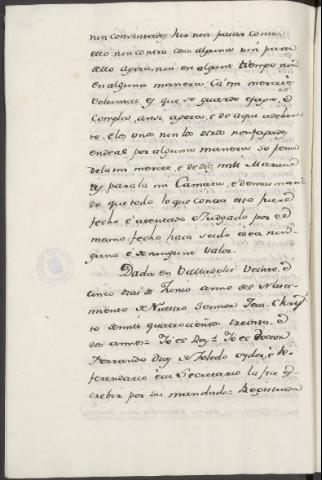 nin consintades hir nin pasar contra
ello nin contra cosa alguna nin parte
dello agora nin en algunt tiempo nin
en alguna manera Ca mi merced e
voluntad es que se guarde e faga, e
compla, ansi agora, e de aqui adelan-
te. E los unos nin los otros non fagades
ende al por alguna manera so pena
de la mi merced, e de diez mill Maraved
is para la mi Camara, e demas man
do que todo lo que contra esto fuere
fecho é atentado e Judgado por el
mesmo fecho haya seido e sea nin-
guno e de ningunt valor.
Dada en Valladolid Veinte, e
cinco dias de Junio año del Nasci-
miento de Nuestro Sennor Jesu Christ
o de mill quatrocientos treinta, e
dos annos = Yo el Rey = Yo el Doctor
Ferrando Diaz de Toledo oydor, e Re-
ferendario e su Secretario la fice es-
crebir por su mandado = Registrada